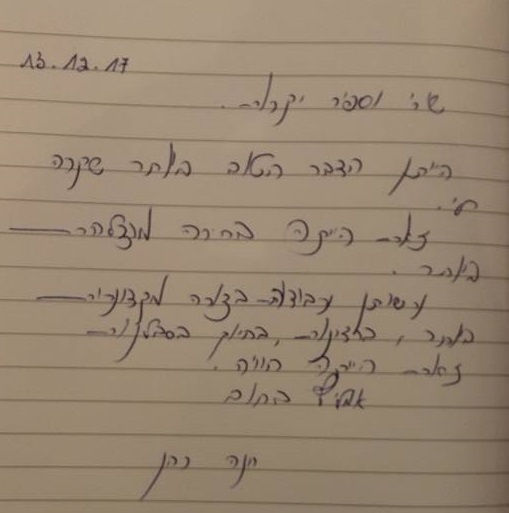 13.12.17
שרי וספיר יקרות.
הייתן הדבר הטוב ביותר שקרה
לי.
זאת הייתה בחירה מוצלחת
ביותר.
עשיתן עבודתכן בצורה מקצועית
ביותר, ברצינות, בחיוך בסבלנות
זאת הייתה חוויה.
אמליץ בחום
חנה כהן